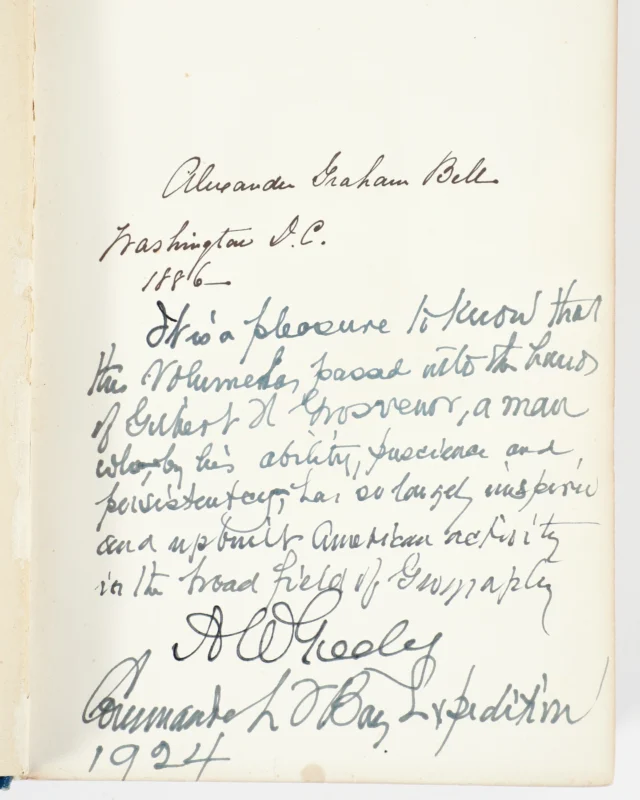 Alexander Graham Bell
Washington D.C.
1886
It is a pleasure to know that
this Volume has passed into the hands
of Gilbert H Grosvenor, a man
who, by his ability, prescience and
persistency, has so largely inspired
and upbuilt American activity
in the broad field of Geography
A W Greely
Commander L F Bay Expedition
1924